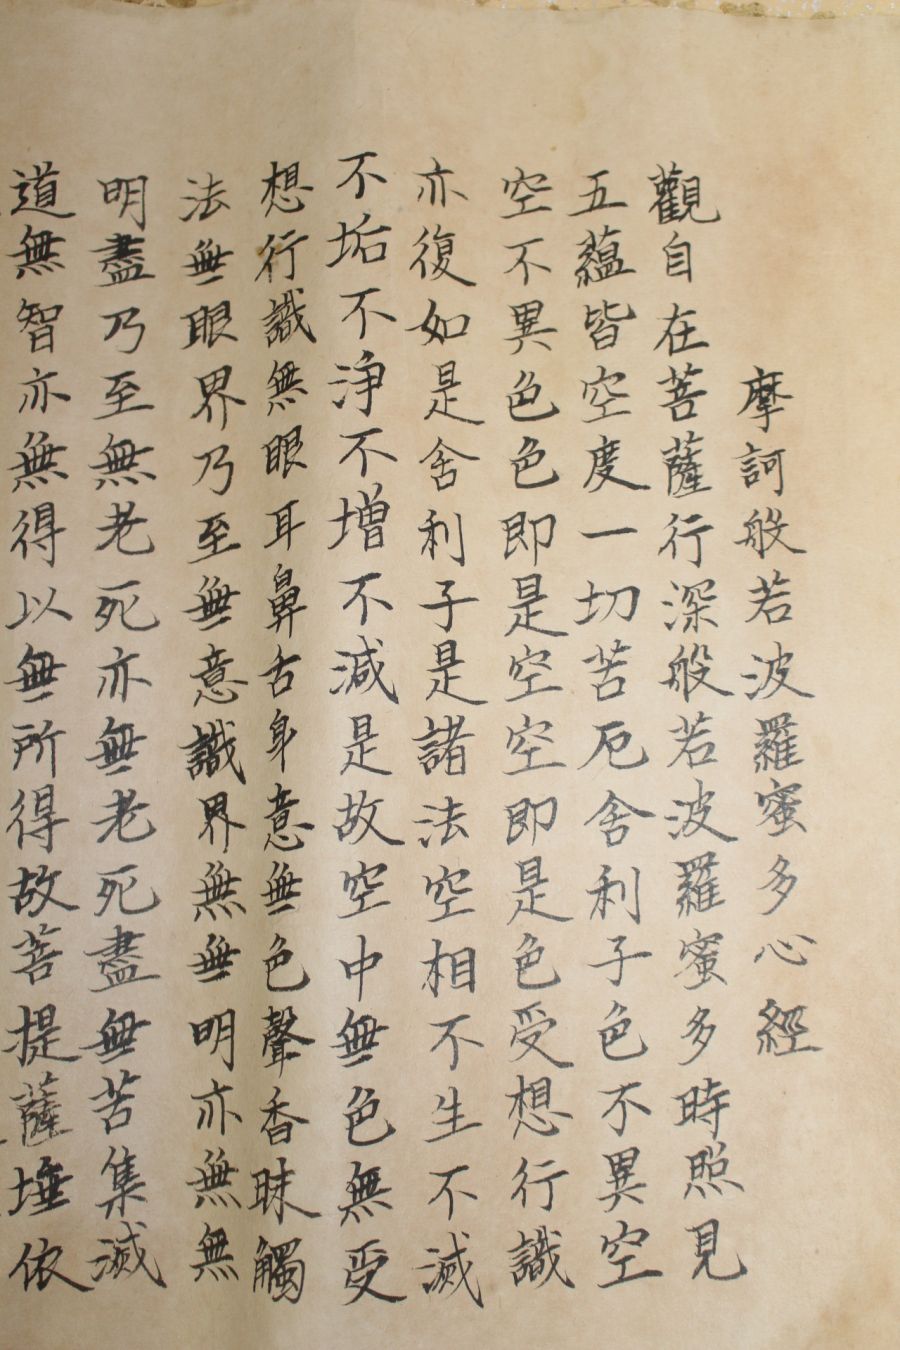 摩訶般若波羅蜜多心經
觀自在菩薩行深般若波羅蜜多時照見
五蘊皆空度一切苦厄舍利子色不異空
空不異色色即是空空即是色受想行識
亦復如是舍利子是諸法空相不生不滅
不垢不淨不增不減是故空中無色無受
想行識無眼耳鼻舌身意無色聲香味觸
法無眼界乃至無意識界無無明亦無無
明盡乃至無老死亦無老死盡無苦集滅
道無智亦無得以無所得故菩提薩埵依